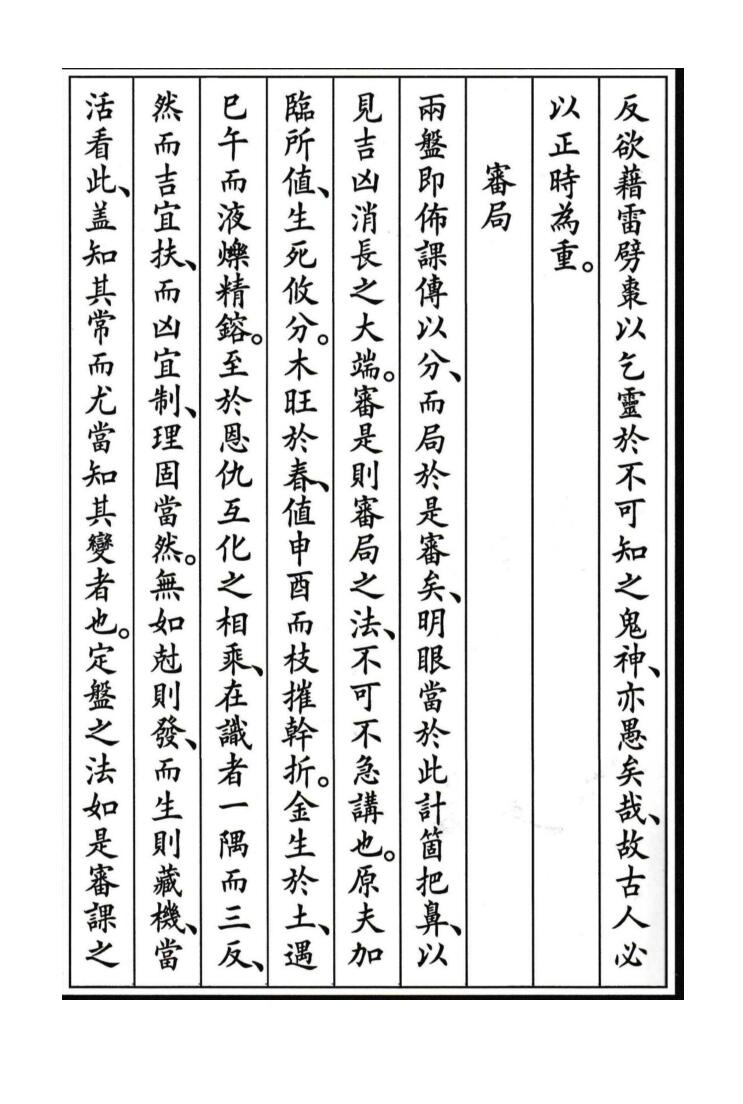 反欲藉雷劈棗以乞靈於不可知之鬼神、亦愚矣哉、故古人必
以正時為重。
審局
兩盤即佈課傳以分、而局於是審矣、明眼當於此計箇把鼻、以
見吉凶消長之大端。審是則審局之法、不可不急講也。原夫加
臨所值、生死攸分。木旺於春、值申酉而枝摧幹折。金生於土、遇
巳午而液爍精鎔。至於恩仇互化之相乘、在識者一隅而三反、
然而吉宜扶、而凶宜制、理固當然。無如尅則發、而生則藏機、當
活看此、盖知其常而尤當知其變者也。定盤之法如是審課之